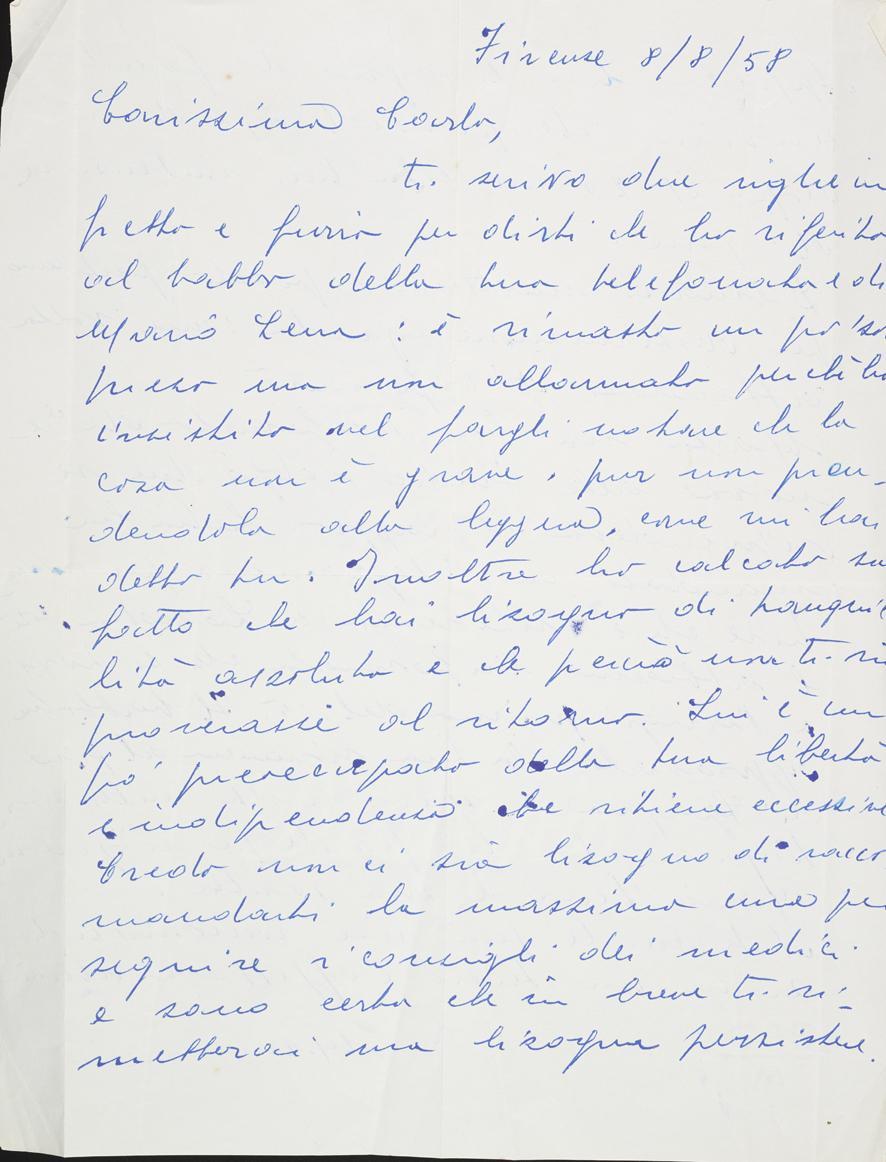 Firenze 8/8/58
Carissima Carla,
ti scrivo due righe in
fretta e furia per dirti che ho riferito
al babbo della tua telefonata e di
Maria Lena : è rimasto un po' sor
preso ma non allarmato perché ho
insistito nel fargli notare che la
cosa non è grave, pur non pren_
dendola alla leggera, come mi hai
detto tu. Inoltre ho calcato sul
fatto che hai bisogno di tranqui
lità assoluta e che perciò non ti rim
proverasse al ritorno. Lui è un
po' preoccupato della tua libertà
e indipendenza che ritiene eccessive
Credo non ci sia bisogno di racco
mandarti la massima cura per
seguire i consigli dei medici
e sono certa che in breve ti ri_
metterai ma bisogna persistere.